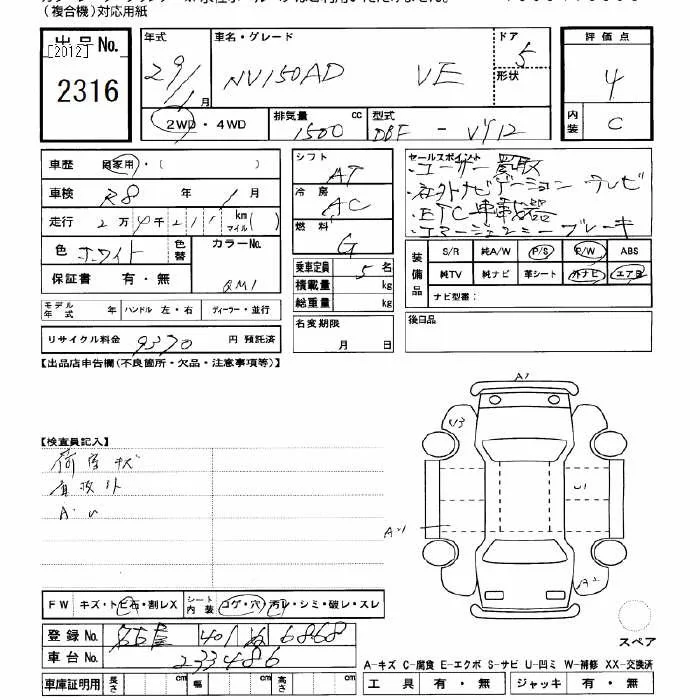 （複合機）対応用紙
出品No.
［2012］
2316
年式
29/1月
車名・グレード
NV150AD VE
ドア 5
形状
評価点
4
内装 C
2WD・4WD
排気量 1500 cc
型式 DBF - VY12
車歴 自家用・（ ）
車検 R8 年 1月
走行 2万4千211 km マイル( )
色 ホワイト 色替
カラーNo. QM1
保証書 有・無
モデル年式 年 ハンドル 左・右 ディーラー・並行
リサイクル料金 9370 円 預託済
シフト AT
冷房 AC
燃料 G
乗車定員 5名
積載量 kg
総重量 kg
名変期限 月 日
セールスポイント
・ユーザー買取
・社外ナビゲーション テレビ
・ETC車載器
・エマージェンシーブレーキ
装備品
S/R 純A/W P/S P/W ABS
純TV 純ナビ 革シート 外ナビ エアB
ナビ型番：
後日品
【出品店申告欄(不良箇所・欠品・注意事項等)】
【検査員記入】
荷室キズ
A1
U3
U1
A2
FW キズ・トビ石・割レX
シート内装 コゲ・穴・汚レ・シミ・破レ・スレ
登録No. 名古屋 401 6868
車台No. 233486
車庫証明用 長さ cm 幅 cm 高さ cm
スペア
A-キズ C-腐食 E-エクボ S-サビ U-凹ミ W-補修 XX-交換済
工具 有・無 ジャッキ 有・無